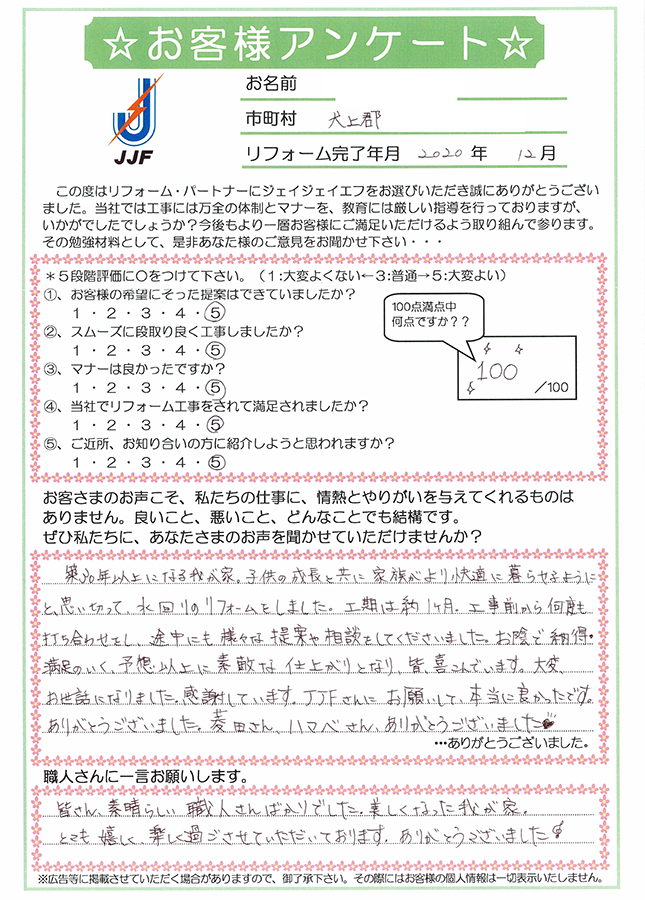 ☆お客様アンケート☆
JJF
お名前
市町村 犬上郡
リフォーム完了年月 2020 年 12 月
この度はリフォーム・パートナーにジェイジェイエフをお選びいただき誠にありがとうござい
ました。当社では工事には万全の体制とマナーを、教育には厳しい指導を行っておりますが、
いかがでしたでしょうか？今後もより一層お客様にご満足いただけるよう取り組んで参ります。
その勉強材料として、是非あなた様のご意見をお聞かせ下さい・・・
＊５段階評価に○をつけて下さい。（１:大変よくない←３:普通→５:大変よい）
①、お客様の希望にそった提案はできていましたか？
１・２・３・４・５
②、スムーズに段取り良く工事しましたか？
１・２・３・４・５
③、マナーは良かったですか？
１・２・３・４・５
④、当社でリフォーム工事をされて満足されましたか？
１・２・３・４・５
⑤、ご近所、お知り合いの方に紹介しようと思われますか？
１・２・３・４・５
100点満点中
何点ですか？？
100 /100
お客さまのお声こそ、私たちの仕事に、情熱とやりがいを与えてくれるものは
ありません。良いこと、悪いこと、どんなことでも結構です。
ぜひ私たちに、あなたさまのお声を聞かせていただけませんか？
築30年以上になる我が家。子供の成長と共に家族がより快適に暮らせるように
と、思い切って、水回りのリフォームをしました。工期は約1ヶ月。工事前から何度も
打ち合わせをし、途中にも様々な提案や相談をしてくださいました。お陰で納得・
満足のいく、予想以上に素敵な仕上がりとなり、皆、喜こんでいます。大変、
お世話になりました。感謝しています。JJFさんにお願いして、本当に良かったです。
ありがとうございました。菱田さん、ハマベさん、ありがとうございました
…ありがとうございました。
職人さんに一言お願いします。
皆さん、素晴らしい職人さんばかりでした。美しくなった我が家。
とても嬉しく、楽しく過ごさせていただいております。ありがとうございました
※広告等に掲載させていただく場合がありますので、御了承下さい。その際にはお客様の個人情報は一切表示いたしません。